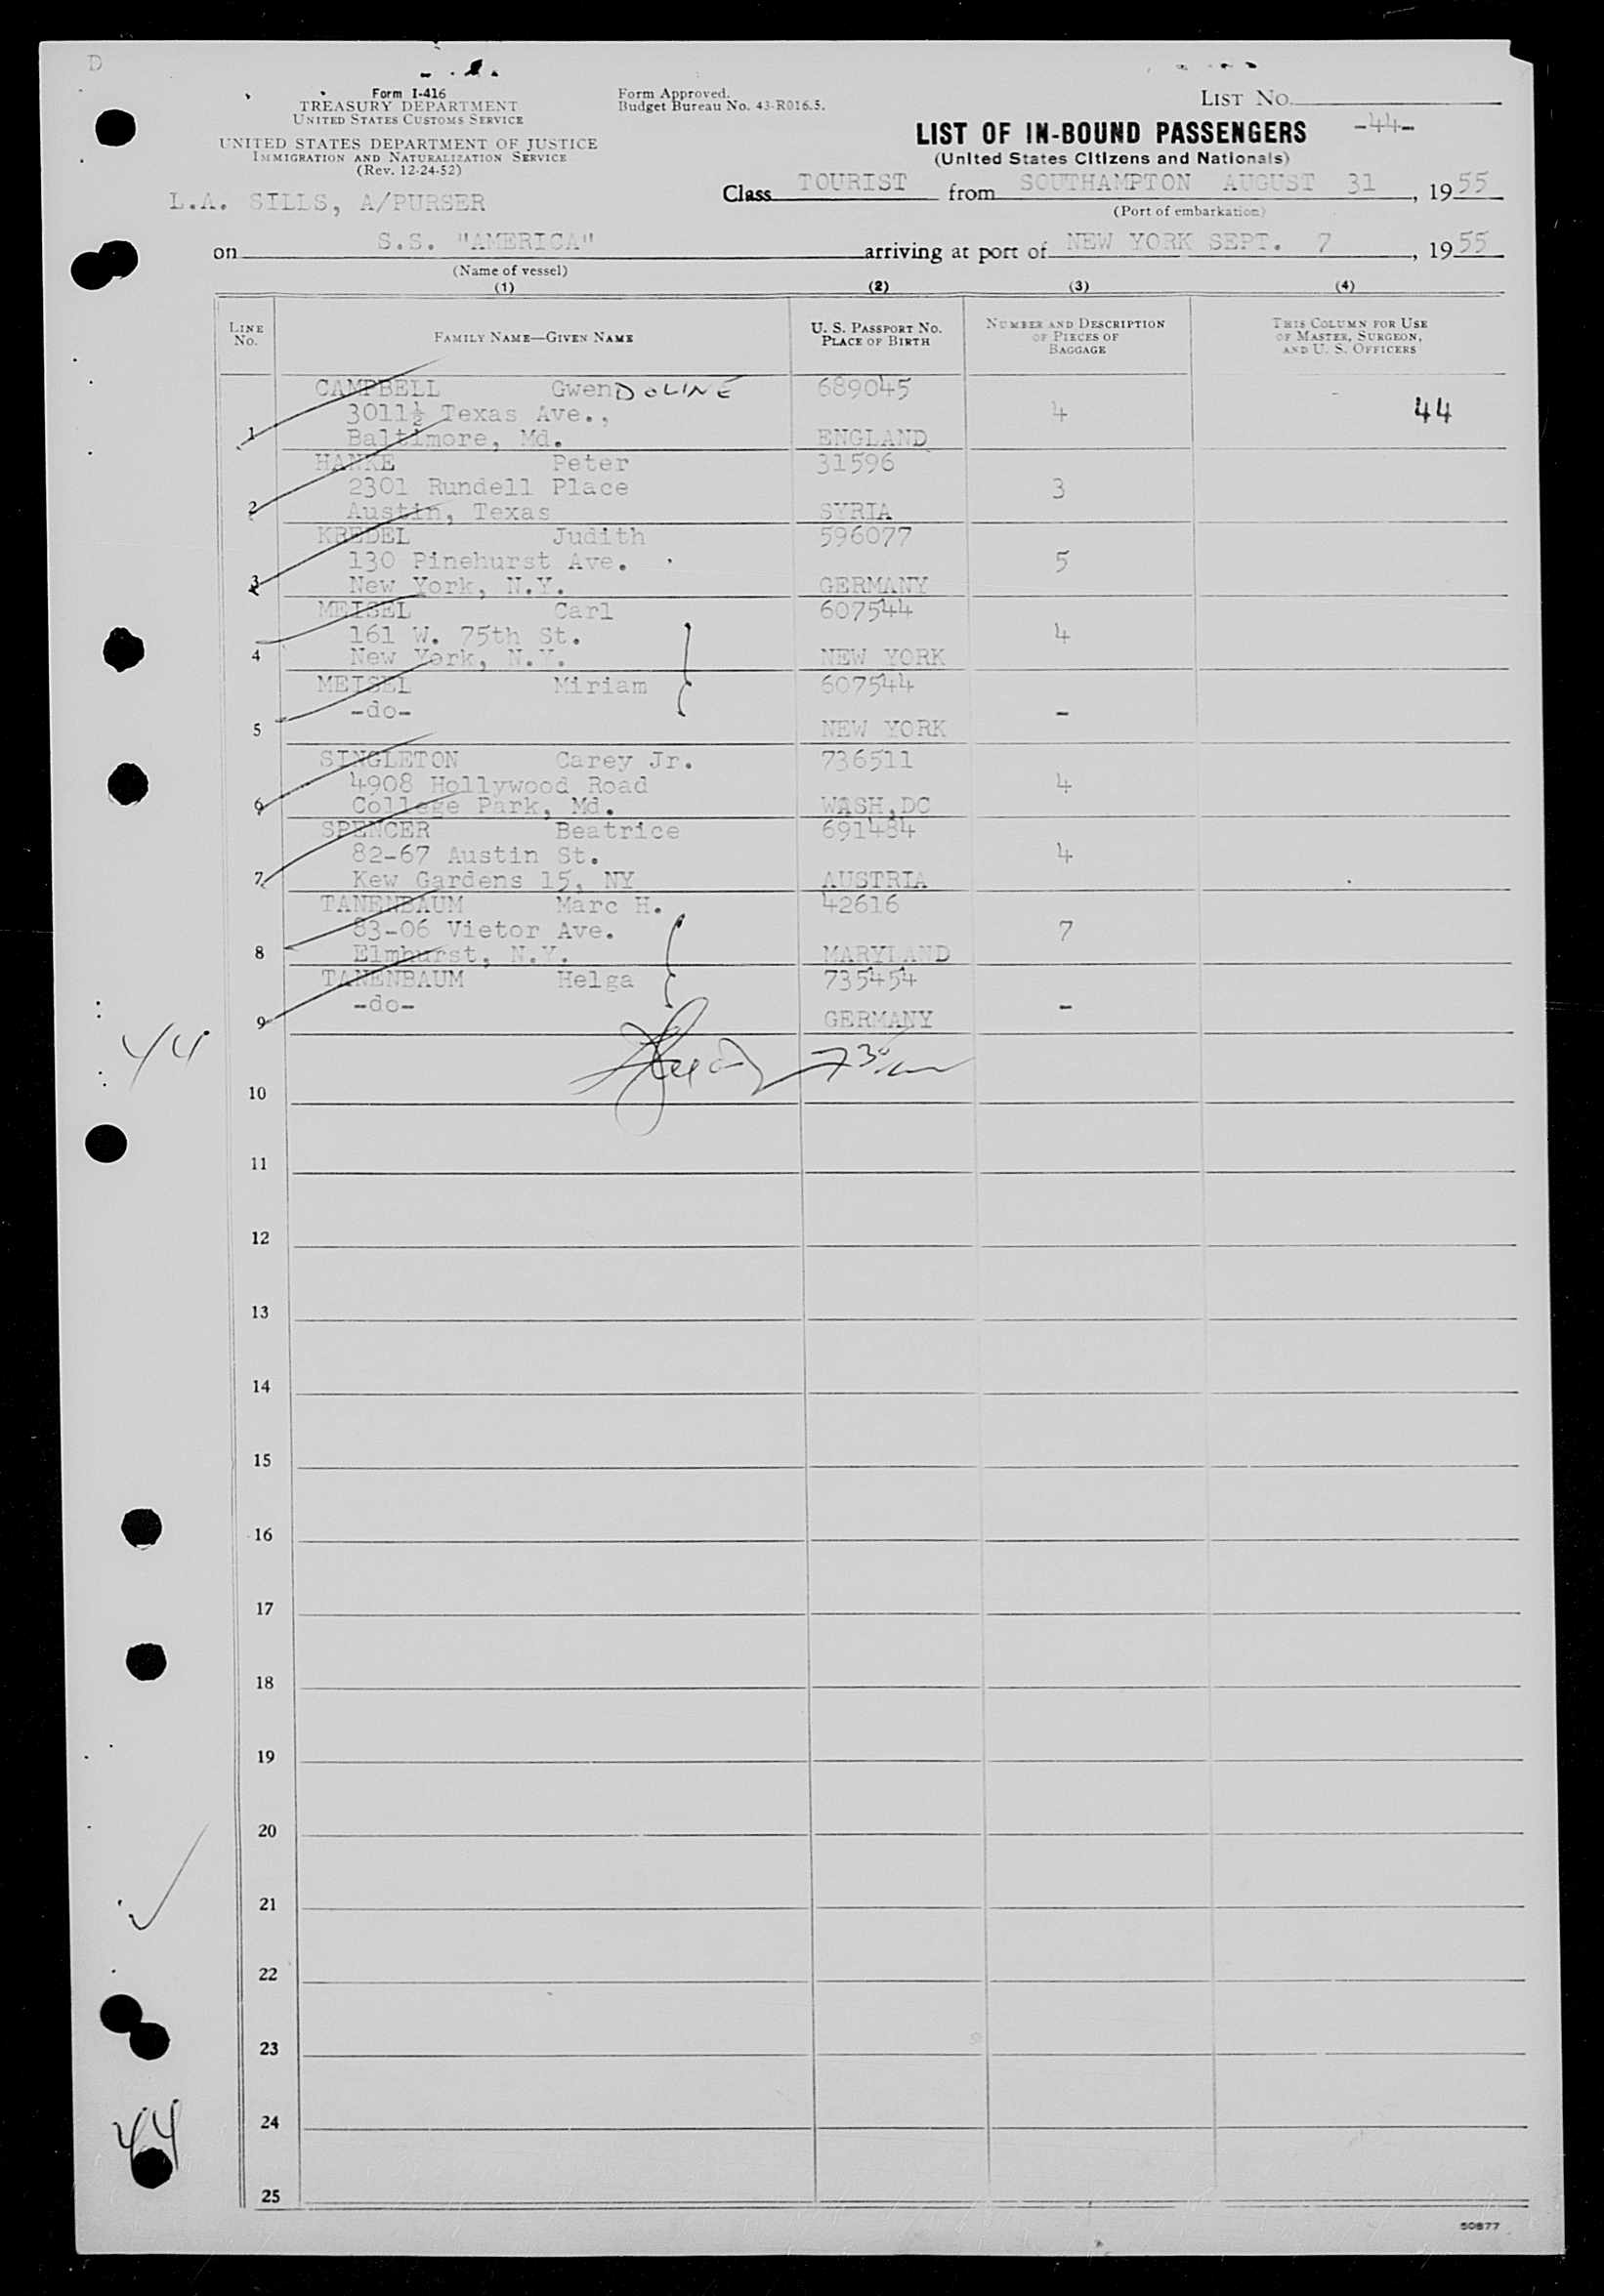 D
Form I-416
TREASURY DEPARTMENT
UNITED STATES CUSTOMS SERVICE
UNITED STATES DEPARTMENT OF JUSTICE
IMMIGRATION AND NATURALIZATION SERVICE
(Rev. 12-24-52)
Form Approved.
Budget Bureau No. 43-R016.5.
LIST NO.
LIST OF IN-BOUND PASSENGERS -44-
(United States Citizens and Nationals)
L.A. SILLS, A/PURSER
Class TOURIST from SOUTHAMPTON AUGUST 31, 1955
(Port of embarkation)
on S.S. "AMERICA" arriving at port of NEW YORK SEPT. 7, 1955
(Name of vessel)
(1) (2) (3) (4)
LINE NO. FAMILY NAME—GIVEN NAME U. S. PASSPORT NO. PLACE OF BIRTH NUMBER AND DESCRIPTION OF PIECES OF BAGGAGE THIS COLUMN FOR USE OF MASTER, SURGEON, AND U. S. OFFICERS
CAMPBELL GwenDOLINE 689045
3011½ Texas Ave., 4 44
1 Baltimore, Md. ENGLAND
HANKE Peter 31596
2301 Rundell Place 3
2 Austin, Texas SYRIA
KREDEL Judith 596077
130 Pinehurst Ave. 5
3 New York, N.Y. GERMANY
MEISEL Carl 607544
161 W. 75th St. 4
4 New York, N.Y. NEW YORK
MEISEL Miriam 607544
-do- -
5 NEW YORK
SINGLETON Carey Jr. 736511
4908 Hollywood Road 4
6 College Park, Md. WASH,DC
SPENCER Beatrice 691484
82-67 Austin St. 4
7 Kew Gardens 15, NY AUSTRIA
TANENBAUM Marc H. 42616
83-06 Vietor Ave. 7
8 Elmhurst, N.Y. MARYLAND
TANENBAUM Helga 735454
-do- -
9 GERMANY
44
10
11
12
13
14
15
16
17
18
19
20
21
22
23
24
44
25
50877